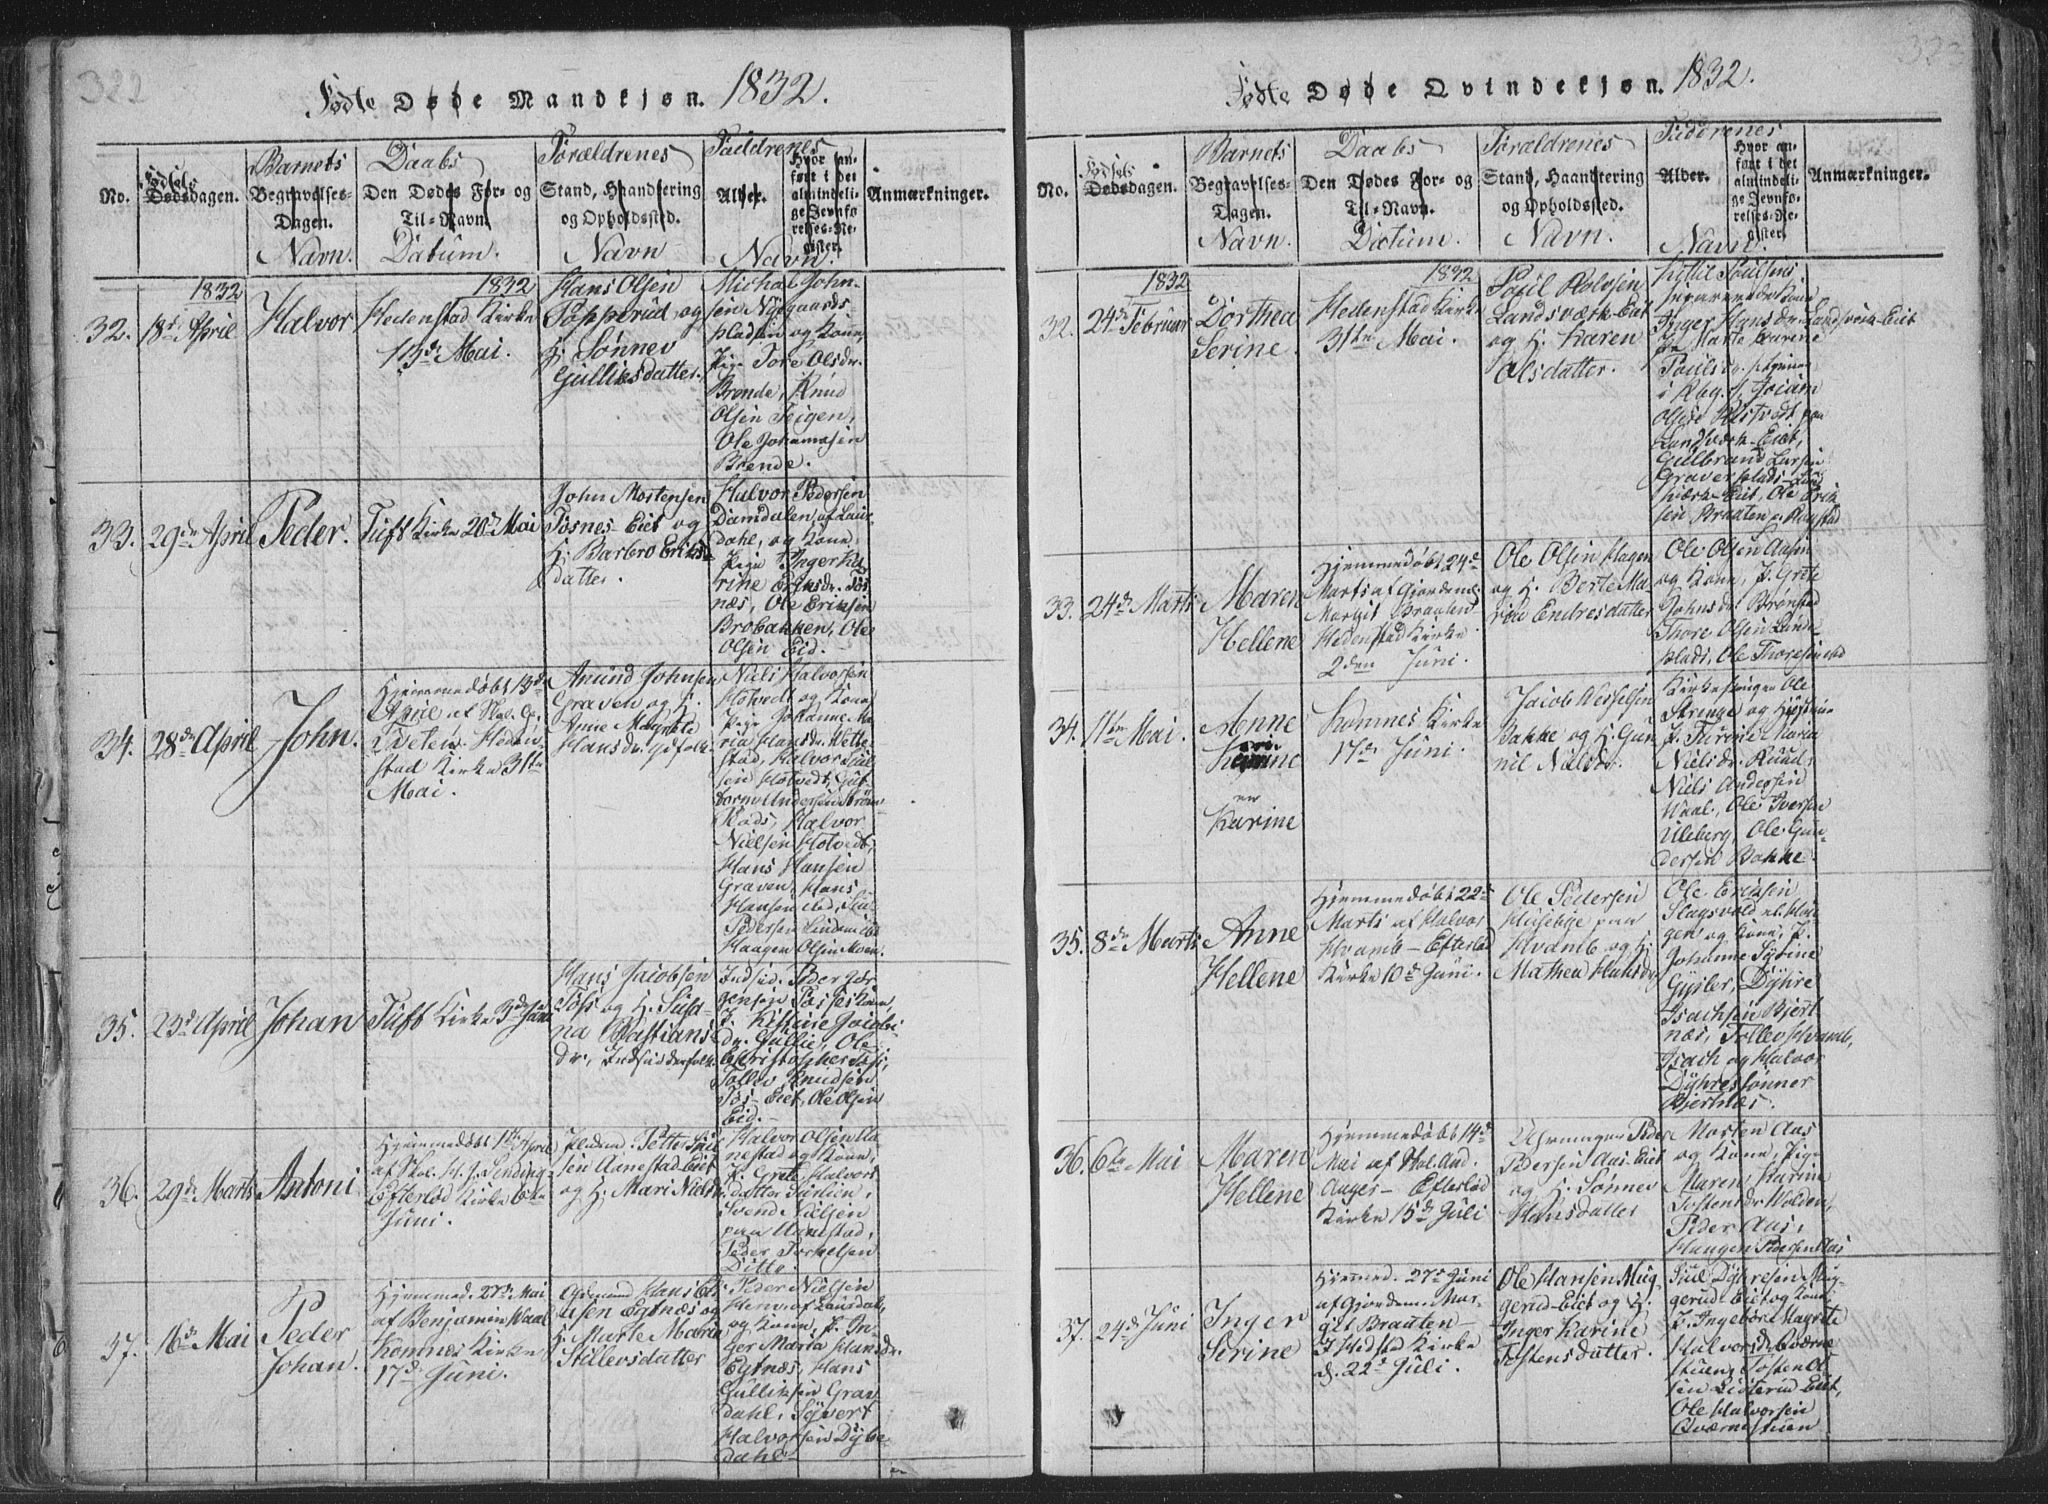 322
Fødte Døde Mandkjøn. 1832.
No.
Fødsels
Dødsdagen.
Barnets
Begravelses-
Dagen.
Navn.
Daabs
Den Dødes For- og
Til-Navn.
Datum.
Forældrenes
Stand, Haandtering
og Opholdssted.
Navn
Faddrenes
Alder.
Navn.
Hvor an-
ført i det
almindeli-
ge Jevnfø-
relses-Re-
gister.
Anmærkninger.
32.
1832
18de April
Halvor
1832
Hedenstad Kirke
13de Mai.
Hans Olsen
Popperud og
H. Sønnev
Gulliksdatter.
Michal John-
sen Nygaards-
pladsen og Kone,
Pige Tore Olsdr.
Brende, Knud
Olsen Teigen,
Ole Johannesen
Brende.
33.
29de April
Peder.
Tuft Kirke 20de Mai
John Mortensen
Fosnes Eiet og
H. Barbro Eriks-
datter.
Halvor Pedersen
Damdalen af Laur-
dahl, og Kone,
Pige Inger Ka-
rine Eriksdr. Fos-
næs, Ole Eriksen
Brobakken, Ole
Olsen Eid.
34.
28de April
John.
Hjemmedøbt 13de
April af Skol. G.
Tveten. Heden-
stad Kirke 31te
Mai.
Amund Johnsen
Graven og H.
Anne Margrete
Hansdr. Gdfolk.
Niels Halvorsen
Hotvedt og Kone
Pige Johanne Ma-
ria Hansdr. Wette-
stad, Halvor Niel-
sen Hotvedt, Gut-
torm Andersen Strøm-
stads, Halvor
Nielsen Hotvedt,
Hans Hansen
Graven, Hans
Hansen ibd,
Pedersen Lindem ibd
Haagen Olsen Moen.
35.
23de April
Johan
Tuft Kirke 3de Juni
Hans Jacobsen
Foss og H. Susa-
na Bastians-
dr., Indsidderfolk.
Indsid. Peder Jør-
gensen Fosseskoven
P. Kistine Jacobs
dr. Gullie, Ole
Christopher Foss,
Tollev Knudsen
Fos-Eiet, Ole Olsen
Eid.
36.
29de Marts
Antoni
Hjemmedøbt 1te April
af Skol. H. J. Lending-
Efteløt Kirke 6te
Juni.
Petter Niel-
sen Aanestad Eiet
og H. Mari Nielsdr.
Halvor Olsen Aa-
nestad og Kone,
P. Grete Halvors
datter
Svend Nielsen
paa Aanestad,
Peder Torkelsen
Ditto.
37.
16de Mai
Peder
Johan.
Hjemmed. 27de Mai
af Benjamin Waal
Komnes Kirke
17de Juni.
Egtnæs og
H. Marte Maria
Stillevsdatter
Peder Nielsen
Hem af Laurdal,
og Kone, P. In-
ger Maria Hansdr.
Egtnæs, Hans
Gulliksen Grav-
dahl, Syvert
Halvorsen Dybe-
dahl
323
Fødte Døde Qvindekjøn. 1832.
No.
Fødsels
Dødsdagen.
Barnets
Begravelses-
Dagen.
Navn.
Daabs
Den Dødes For- og
Til-Navn.
Datum.
Forældrenes
Stand, Haandtering
og Opholdssted.
Navn.
Faddrenes
Alder.
Navn.
Hvor an-
ført i det
almindeli-
ge Jevnfø-
relses-Re-
gister.
Anmærkninger.
32.
1832
24de Februar
Dorthea
Serine.
1832
Hedenstad Kirke
31te Mai.
Poul Rolvsen
Landsværk-Eiet
og H. Karen
Olsdatter.
Inger Hansdr. Landsverk-Eiet
Marte Karine
Poulsdr.
Olsen Ulstvedt paa
Landsværk-Eiet,
Gulbrand Larsen
Graverplads Land-
sværk-Eiet, Ole Erik-
sen Braaten
33.
24de Marts
Maren
Hellene
Hjemmedøbt 24de
Marts af Gjordemo.
Margit Braaten
Hedenstad Kirke
2den Juni.
Ole Olsen Hagen
og H. Berte Ma-
ria Endresdatter
Ole Olsen Aasen
og Kone, P. Grete
Johnsdr. Brønstad
Thore Olsen Lunde-
plads, Ole Thoresen ibd
34.
11te Mai.
Anne
Karine
en
Karine
Komnes Kirke
17de Juni.
Jacob Wesselsen
Bakke og H. Gun-
nil Nielsdr.
Kirkesanger Ole
Strenge og Hustru
P. Turine Maria
Nielsdr. Ruud,
Niels Andersen
Waal, Ole Iversen
Uleberg, Ole Gun-
dersen Bakke
35.
8de Marts
Anne
Hellene
Hjemmedøbt 22de
Marts af Halvor
Hvamb - Efteløt
Kirke 10de Juni.
Ole Pedersen
Huseby paa
Hvamb og H.
Mathea Hansdr.
Ole Eriksen
Slagsvold el. Ha-
gen og Kone, P.
Johanne Sybine
Gysler, Dyhre
Isachsen Bjert-
næs, Tollev Hvamb,
Isach og Halvor
Dyhressønner
Bjertnæs.
36.
6te Mai
Maren
Hellene
Hjemmedøbt 14de
Mai af Hol. And.
Auger - Efteløt
Kirke 15de Juli
Peder
Pedersen Aas Eiet
og H. Sønnev
Hansdatter
Morten Aas
og Kone, Pige
Maren Karine
Tostensdr Wolden,
Peder Aas,
Haagen Pedersen Aas
37.
24de Juni
Inger
Serine.
Hjemmed. 27de Juni
af Gjordem. Mar-
git Braaten -
I Hedstad Kirke
d. 22de Juli.
Ole Hansen Mug-
gerud-Eiet og H.
Inger Karine
Tostensdatter.
Juel Dyhresen Mug-
gerud Eiet og Kone
P. Ingebør Magrete
Halvorsdr. Qværne-
stuen, Tosten Ol-
sen Lidterud Eiet,
Ole Halvorsen
Qværnestuen